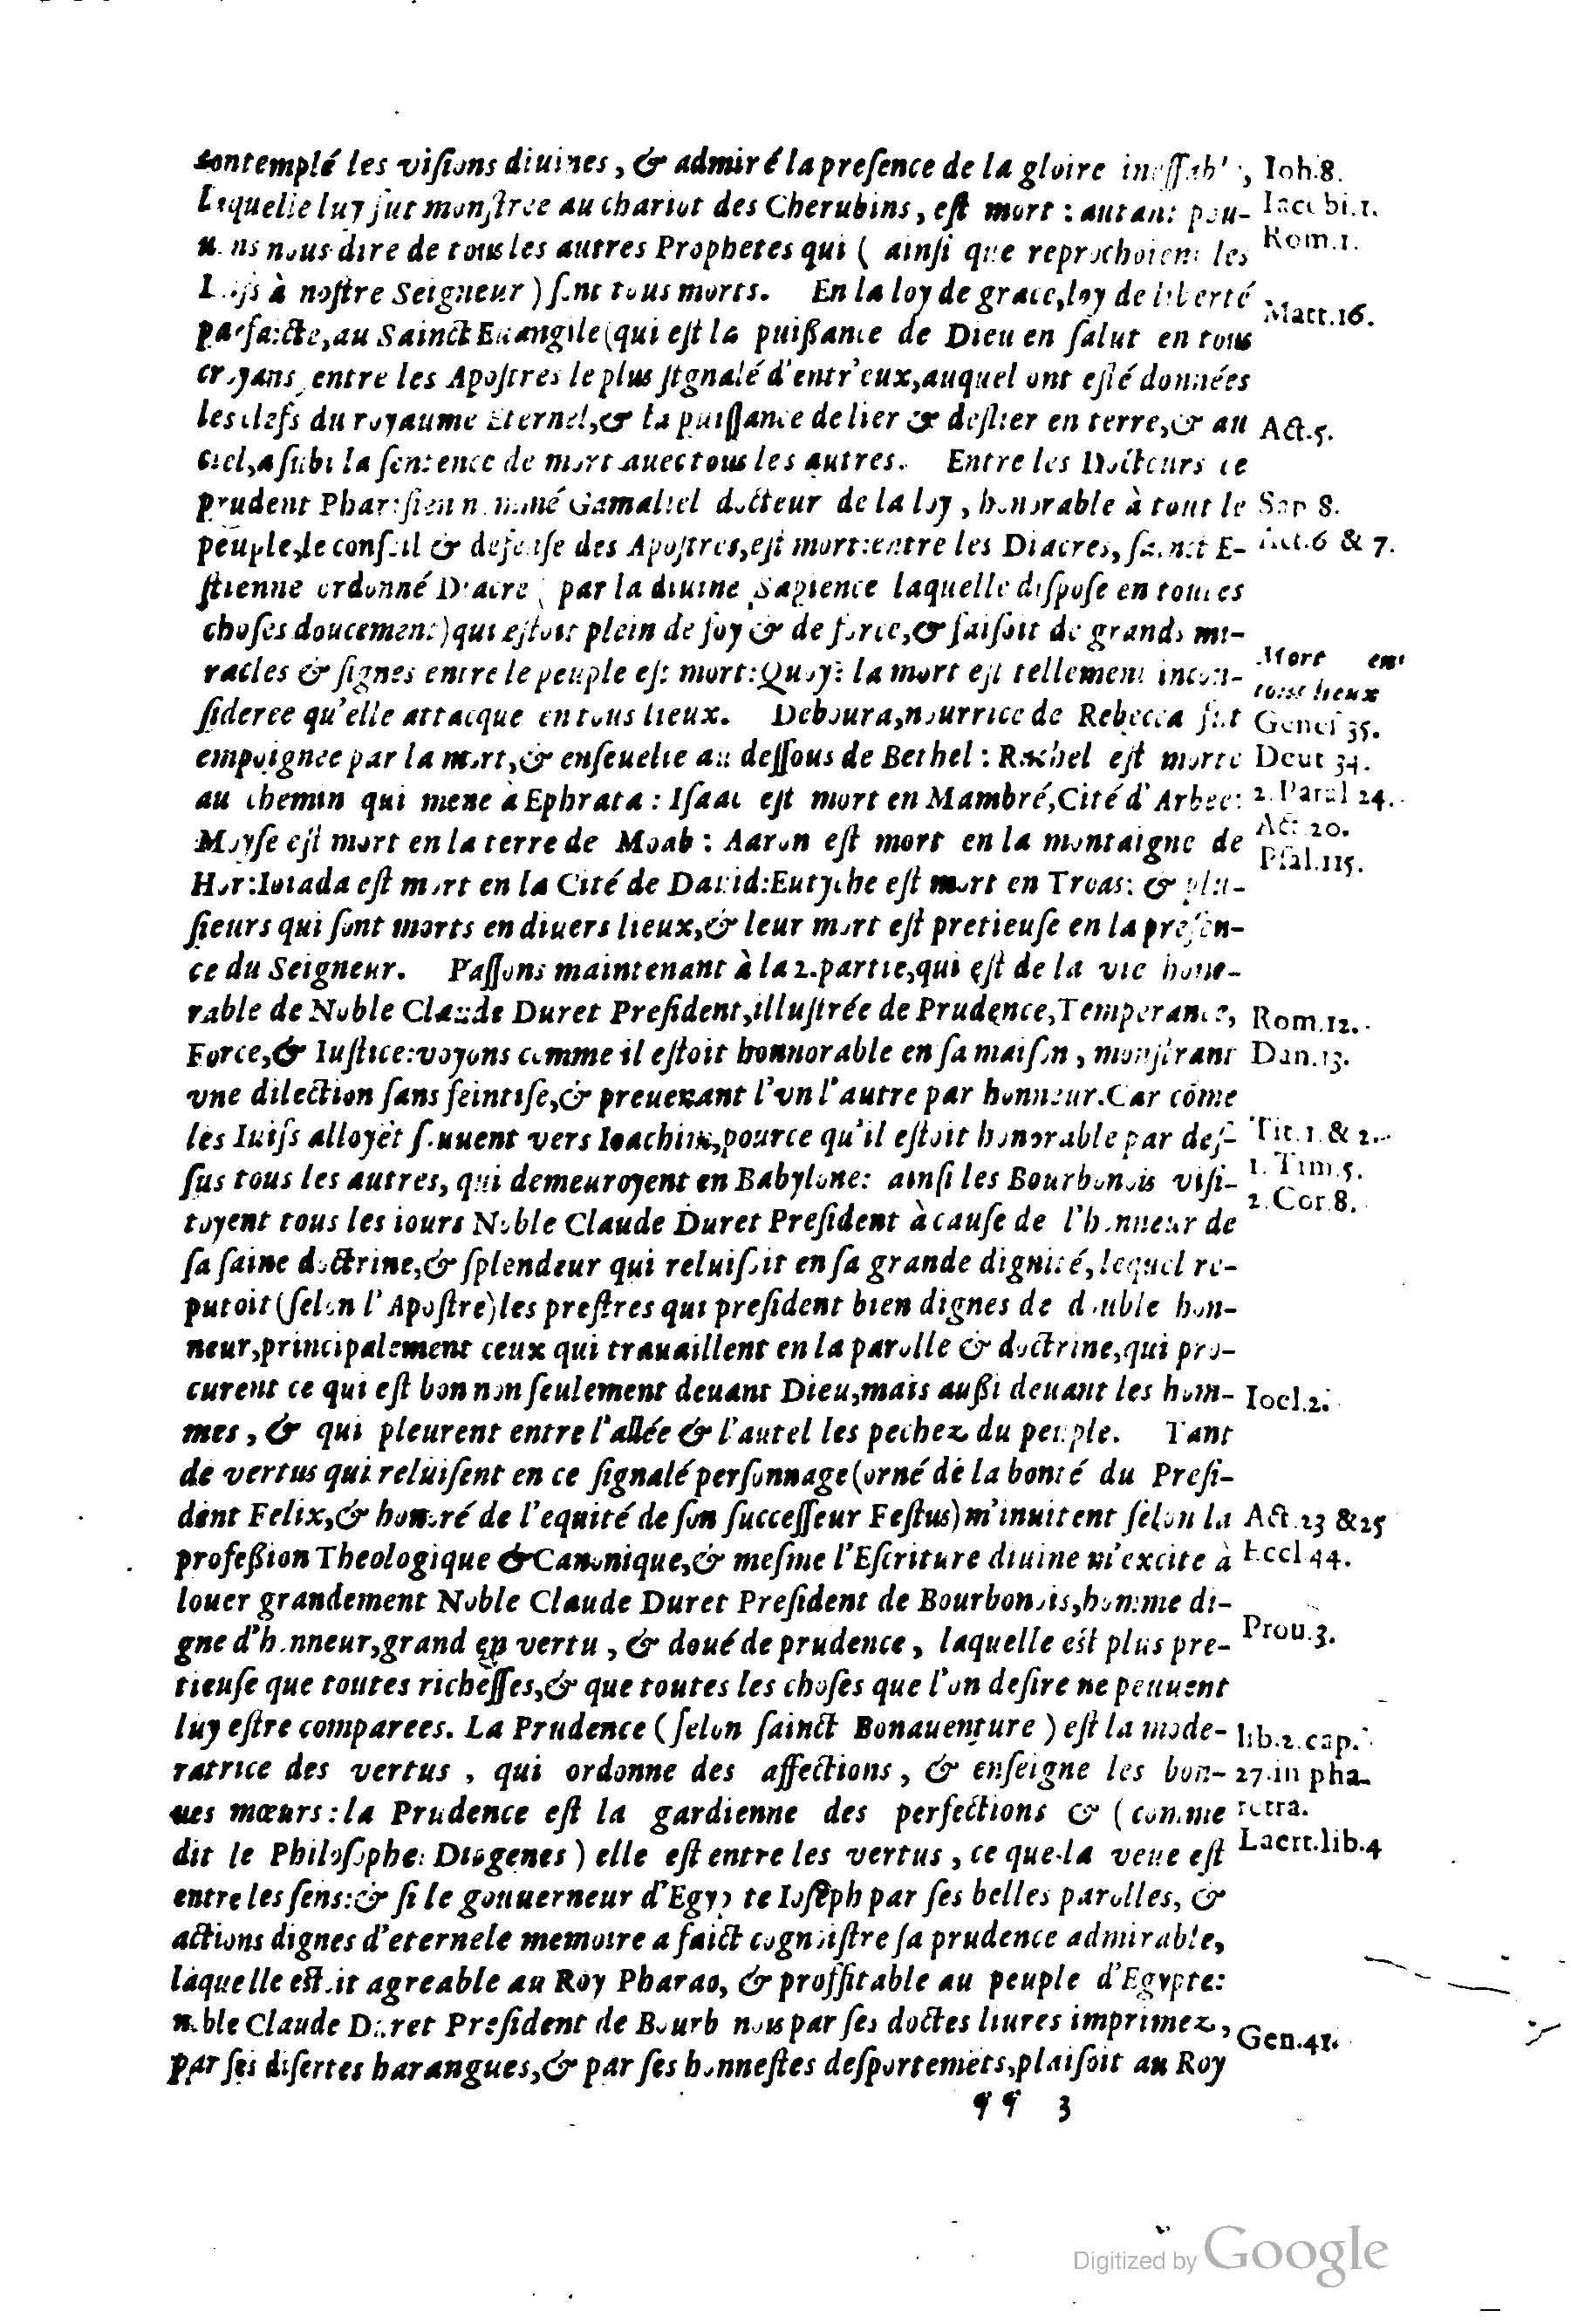 contemplé les viſions diuines, & admiré la preſence de la gloire ineffab', Ioh.8.
Laquelle luy fut monſtree au chariot des Cherubins, eſt mort : autant pou- Iacobi.1.
uons nous dire de tous les autres Prophetes qui ( ainſi que reprochoient les Rom.1.
Iuifs à noſtre Seigneur) ſont tous morts. En la loy de grace, loy de liberté
parfaicte, au Sainct Euangile (qui eſt la puiſſance de Dieu en ſalut en tous Matt.16.
croyans, entre les Apoſtres le plus ſignalé d'entr'eux, auquel ont eſté données
les clefs du royaume Eternel, & la puiſſance de lier & deſlier en terre, & au Act.5.
ciel, a ſubi la ſentence de mort auec tous les autres. Entre les Docteurs ce
prudent Phariſien nommé Gamaliel docteur de la loy, honorable à tout le Sap 8.
peuple, le conſeil & defenſe des Apoſtres, eſt mort: entre les Diacres, ſainct E- Act.6 & 7.
ſtienne ordonné Diacre ( par la diuine Sapience laquelle diſpoſe en toutes
choſes doucement) qui eſtoit plein de foy & de force, & faiſoit de grands mi-
racles & ſignes entre le peuple eſt mort: Quoy: la mort eſt tellement incon- Mort en
ſideree qu'elle attacque en tous lieux. Deboura, nourrice de Rebecca fut tous lieux Geneſ 35.
empoignee par la mort, & enſeuelie au deſſous de Bethel : Rachel eſt morte Deut 34.
au chemin qui mene à Ephrata : Iſaac eſt mort en Mambré, Cité d'Arbee: 2. Paral 24.
Moyſe eſt mort en la terre de Moab : Aaron eſt mort en la montaigne de Act 20.
Hor: Ioiada eſt mort en la Cité de Dauid: Eutyche eſt mort en Troas: & plu- Pſal.115.
ſieurs qui ſont morts en diuers lieux, & leur mort eſt pretieuſe en la preſen-
ce du Seigneur. Paſſons maintenant à la 2. partie, qui eſt de la vie hono-
rable de Noble Claude Duret Preſident, illuſtrée de Prudence, Temperance, Rom.12.
Force, & Iuſtice: voyons comme il eſtoit honnorable en ſa maiſon, monſtrant Dan.13.
vne dilection ſans feintiſe, & preuenant l'vn l'autre par honneur. Car cōme
les Iuifs alloyēt ſouuent vers Ioachim, pource qu'il eſtoit honorable par deſ- Tit.1. & 2.
ſus tous les autres, qui demeuroyent en Babylone: ainſi les Bourbonois viſi- 1. Tim.5.
toyent tous les iours Noble Claude Duret Preſident à cauſe de l'honneur de 2. Cor.8.
ſa ſaine doctrine, & ſplendeur qui reluiſoit en ſa grande dignité, lequel re-
putoit (ſelon l'Apoſtre) les preſtres qui preſident bien dignes de double hon-
neur, principalement ceux qui trauaillent en la parolle & doctrine, qui pro-
curent ce qui eſt bon non ſeulement deuant Dieu, mais auſſi deuant les hom- Ioel.2.
mes, & qui pleurent entre l'allée & l'autel les pechez du peuple. Tant
de vertus qui reluiſent en ce ſignalé perſonnage (orné de la bonté du Preſi-
dent Felix, & honoré de l'equité de ſon ſucceſſeur Feſtus) m'inuitent ſelon la Act.23 & 25
profeſſion Theologique & Canonique, & meſme l'Eſcriture diuine m'excite à Eccl 44.
louer grandement Noble Claude Duret Preſident de Bourbonois, homme di-
gne d'honneur, grand en vertu, & doué de prudence, laquelle eſt plus pre- Prou.3.
tieuſe que toutes richeſſes, & que toutes les choſes que l'on deſire ne peuuent
luy eſtre comparees. La Prudence ( ſelon ſainct Bonauenture ) eſt la mode- lib.2.cap.
ratrice des vertus , qui ordonne des affections, & enſeigne les bon- 27.in pha-
ues mœurs : la Prudence eſt la gardienne des perfections & ( comme retra.
dit le Philoſophe Diogenes ) elle eſt entre les vertus, ce que la veue eſt Laert.lib.4
entre les ſens: & ſi le gouuerneur d'Egypte Ioſeph par ſes belles parolles, &
actions dignes d'eternele memoire a faict cognoiſtre ſa prudence admirable,
laquelle eſtoit agreable au Roy Pharao, & proffitable au peuple d'Egypte:
noble Claude Duret Preſident de Bourbonois par ſes doctes liures imprimez, Gen.41.
par ſes diſertes harangues, & par ſes honneſtes deſportemēts, plaiſoit au Roy
¶¶ 3
Digitized by Google